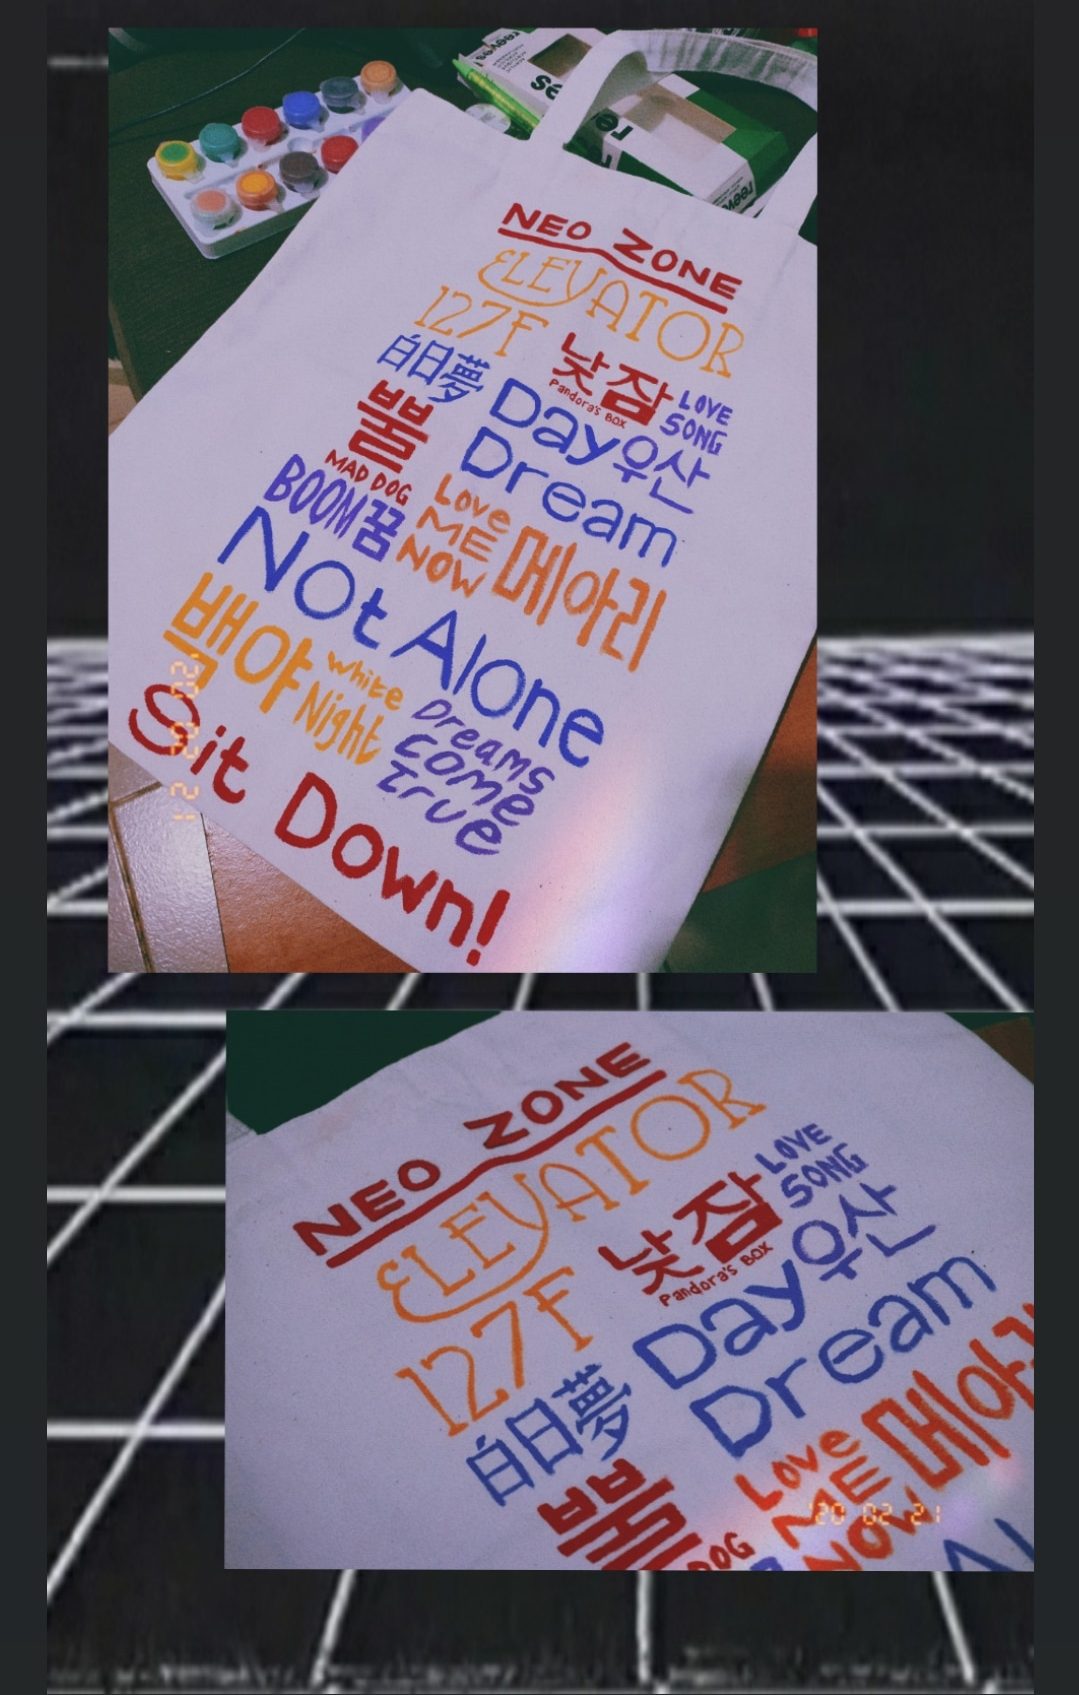 reeves
es
ree
reeves
NEO ZONE
ELEVATOR
127F
낮잠
Pandora's BOX
LOVE
SONG
白日夢
Day
Dream
우산
뿜
MAD DOG
BOOM
꿈
LOVE
ME
NOW
메아리
Not Alone
백야
White
Night
Dreams
COME
True
Sit Down!
'20 02 21
NEO ZONE
ELEVATOR
127F
낮잠
Pandora's BOX
LOVE
SONG
白日夢
Day
Dream
우산
뿜
DOG
LOVE
ME
NOW
메아리
Al
'20 02 21